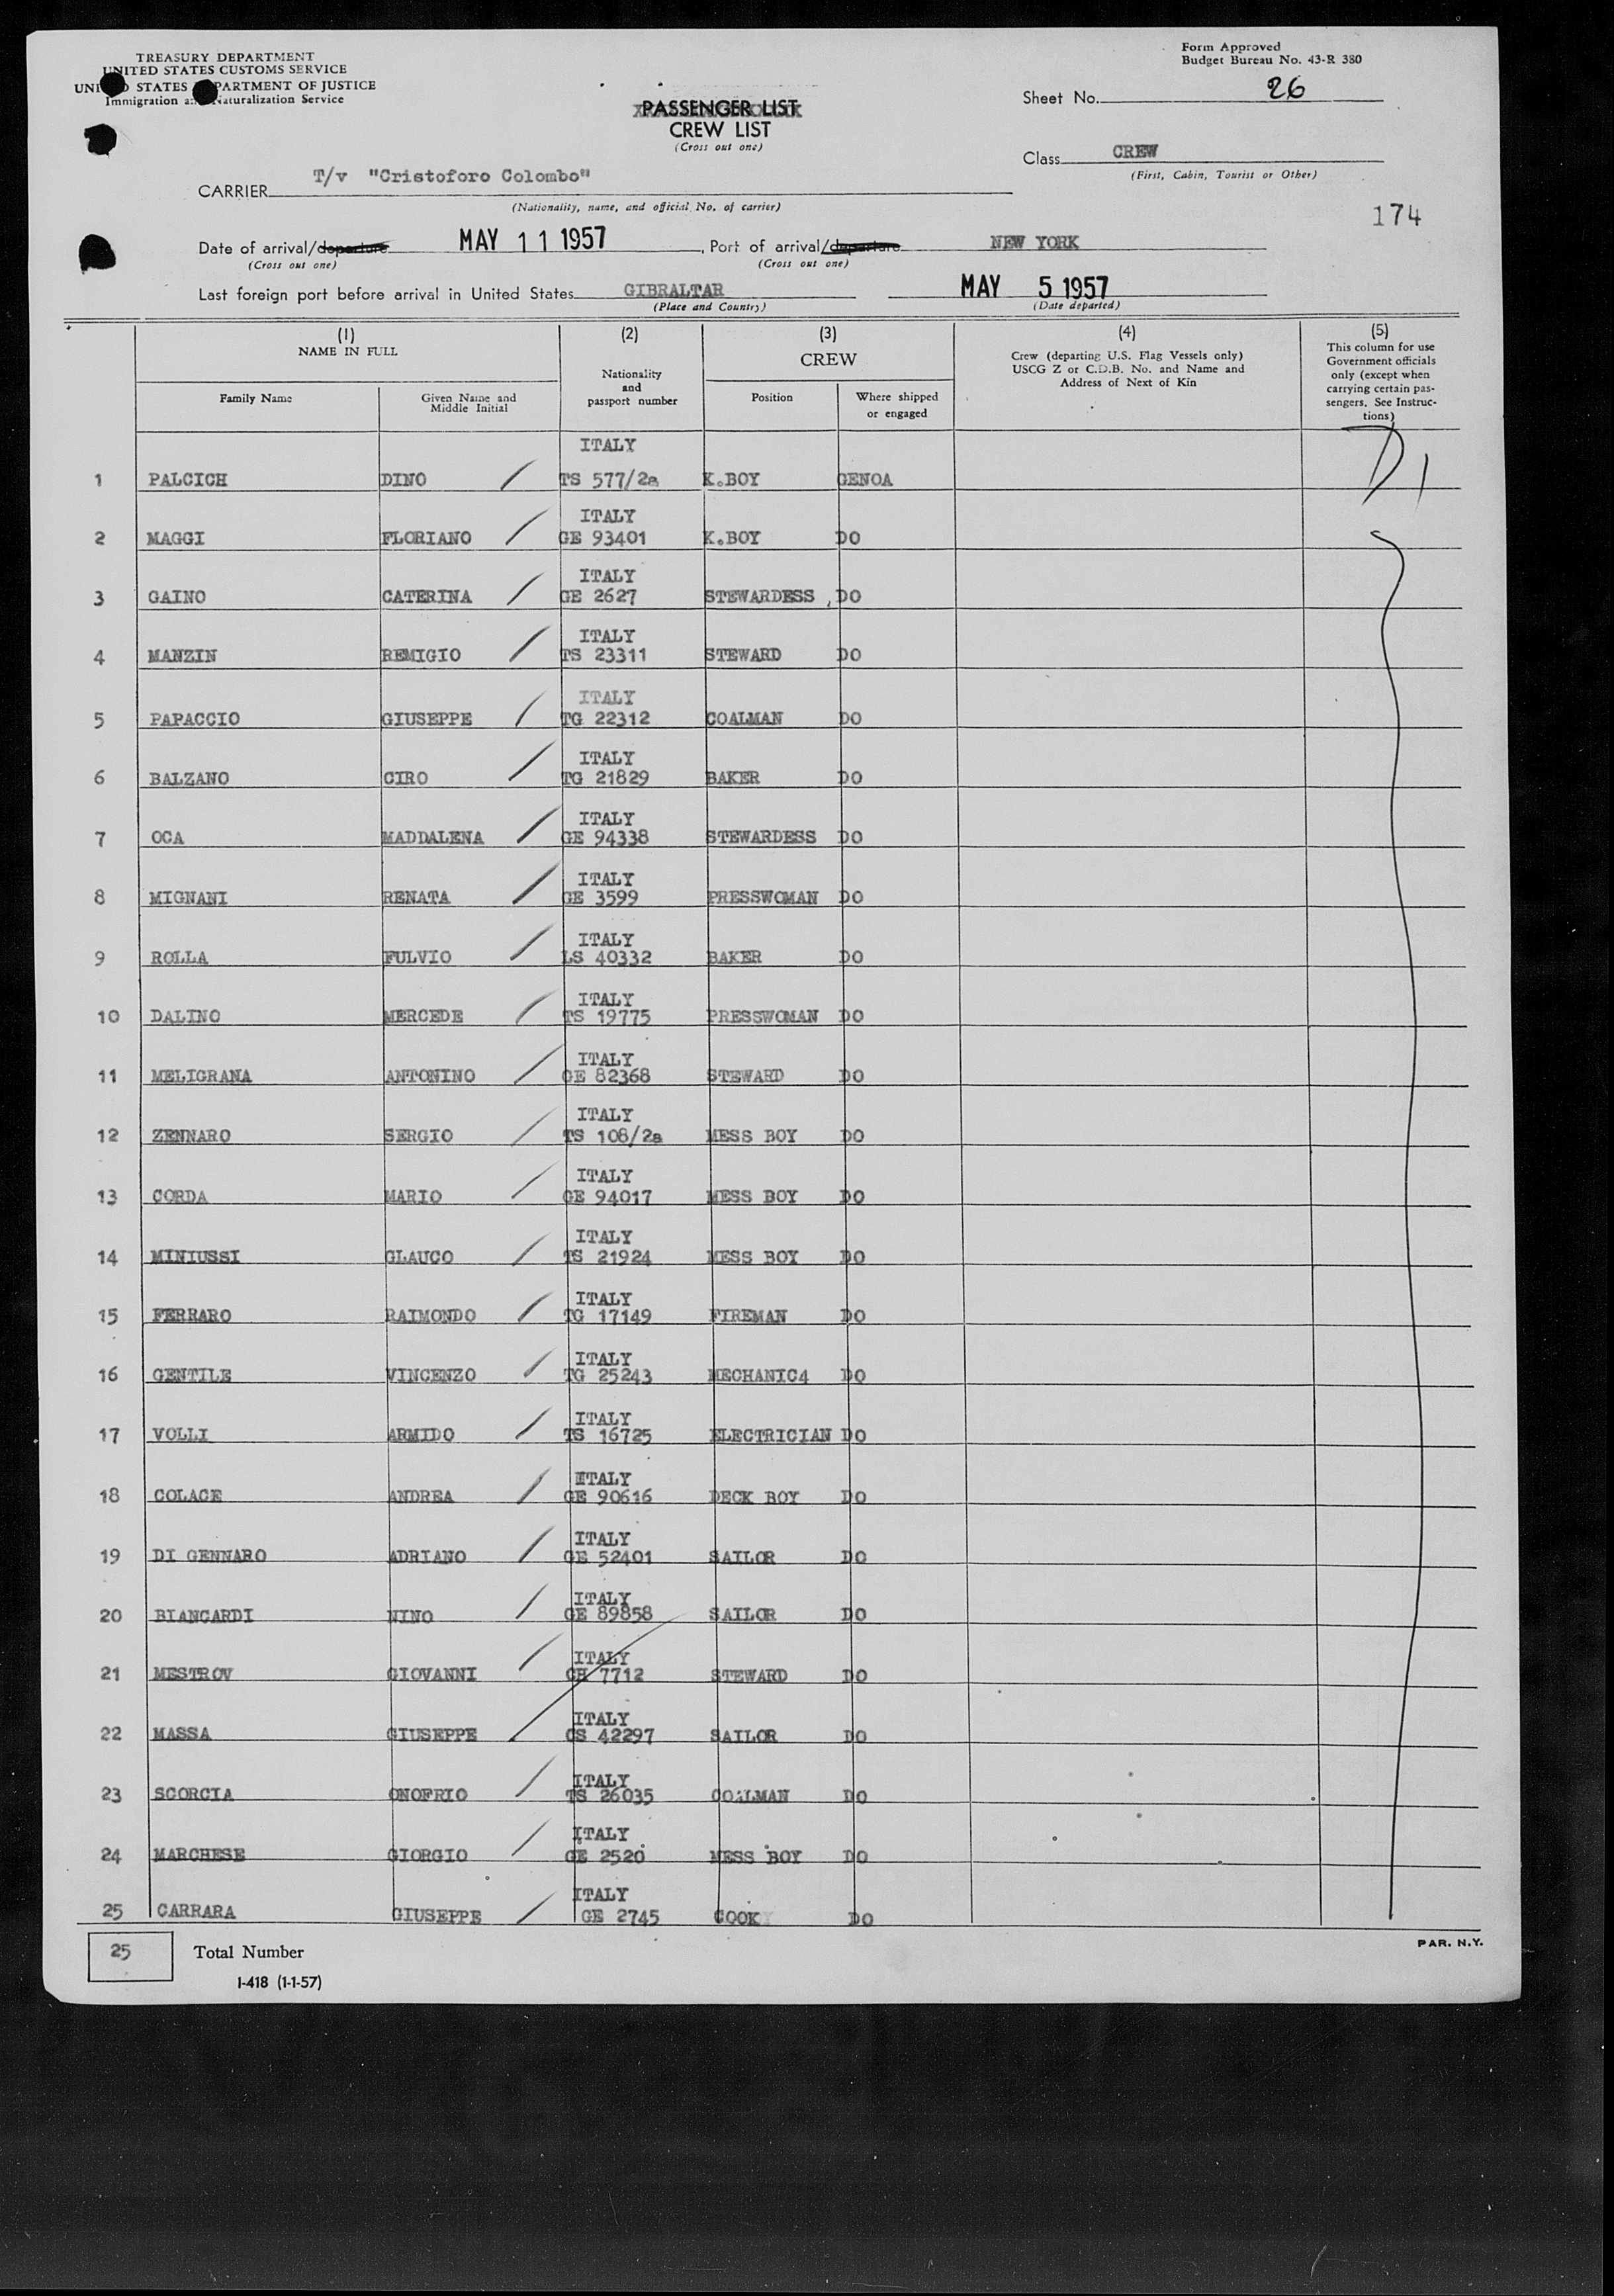 TREASURY DEPARTMENT
UNITED STATES CUSTOMS SERVICE
UNITED STATES DEPARTMENT OF JUSTICE
Immigration and Naturalization Service
Form Approved
Budget Bureau No. 43-R 380
Sheet No. 26
PASSENGER LIST
CREW LIST
(Cross out one)
Class CREW
(First, Cabin, Tourist or Other)
CARRIER T/v "Cristoforo Colombo"
(Nationality, name, and official No. of carrier)
174
Date of arrival/departure MAY 11 1957, Port of arrival/departure NEW YORK
(Cross out one) (Cross out one)
Last foreign port before arrival in United States GIBRALTAR MAY 5 1957
(Place and Country) (Date departed)
(1) (2) (3) (4) (5)
NAME IN FULL Nationality and passport number CREW Crew (departing U.S. Flag Vessels only) USCG Z or C.D.B. No. and Name and Address of Next of Kin This column for use Government officials only (except when carrying certain passengers. See Instructions)
Family Name Given Name and Middle Initial Position Where shipped or engaged
ITALY
1 PALCICH DINO TS 577/2a K.BOY GENOA
ITALY
2 MAGGI FLORIANO GE 93401 K.BOY DO
ITALY
3 GAINO CATERINA GE 2627 STEWARDESS DO
ITALY
4 MANZIN REMIGIO TS 23311 STEWARD DO
ITALY
5 PAPACCIO GIUSEPPE TG 22312 COALMAN DO
ITALY
6 BALZANO CIRO TG 21829 BAKER DO
ITALY
7 OCA MADDALENA GE 94338 STEWARDESS DO
ITALY
8 MIGNANI RENATA GE 3599 PRESSWOMAN DO
ITALY
9 ROLLA FULVIO LS 40332 BAKER DO
ITALY
10 DALINO MERCEDE TS 19775 PRESSWOMAN DO
ITALY
11 MELIGRANA ANTONINO GE 82368 STEWARD DO
ITALY
12 ZENNARO SERGIO TS 108/2a MESS BOY DO
ITALY
13 CORDA MARIO GE 94017 MESS BOY DO
ITALY
14 MINIUSSI GLAUCO TS 21924 MESS BOY DO
ITALY
15 FERRARO RAIMONDO TG 17149 FIREMAN DO
ITALY
16 GENTILE VINCENZO TG 25243 MECHANIC4 DO
ITALY
17 VOLLI ARMIDO TS 16725 ELECTRICIAN DO
ITALY
18 COLACE ANDREA GE 90616 DECK BOY DO
ITALY
19 DI GENNARO ADRIANO GE 52401 SAILOR DO
ITALY
20 BIANCARDI NINO GE 89858 SAILOR DO
ITALY
21 MESTROV GIOVANNI 7712 STEWARD DO
ITALY
22 MASSA GIUSEPPE CS 42297 SAILOR DO
ITALY
23 SCORCIA ONOFRIO TS 26035 COALMAN DO
ITALY
24 MARCHESE GIORGIO GE 2520 MESS BOY DO
ITALY
25 CARRARA GIUSEPPE GE 2745 COOK DO
25 Total Number
PAR. N.Y.
I-418 (1-1-57)